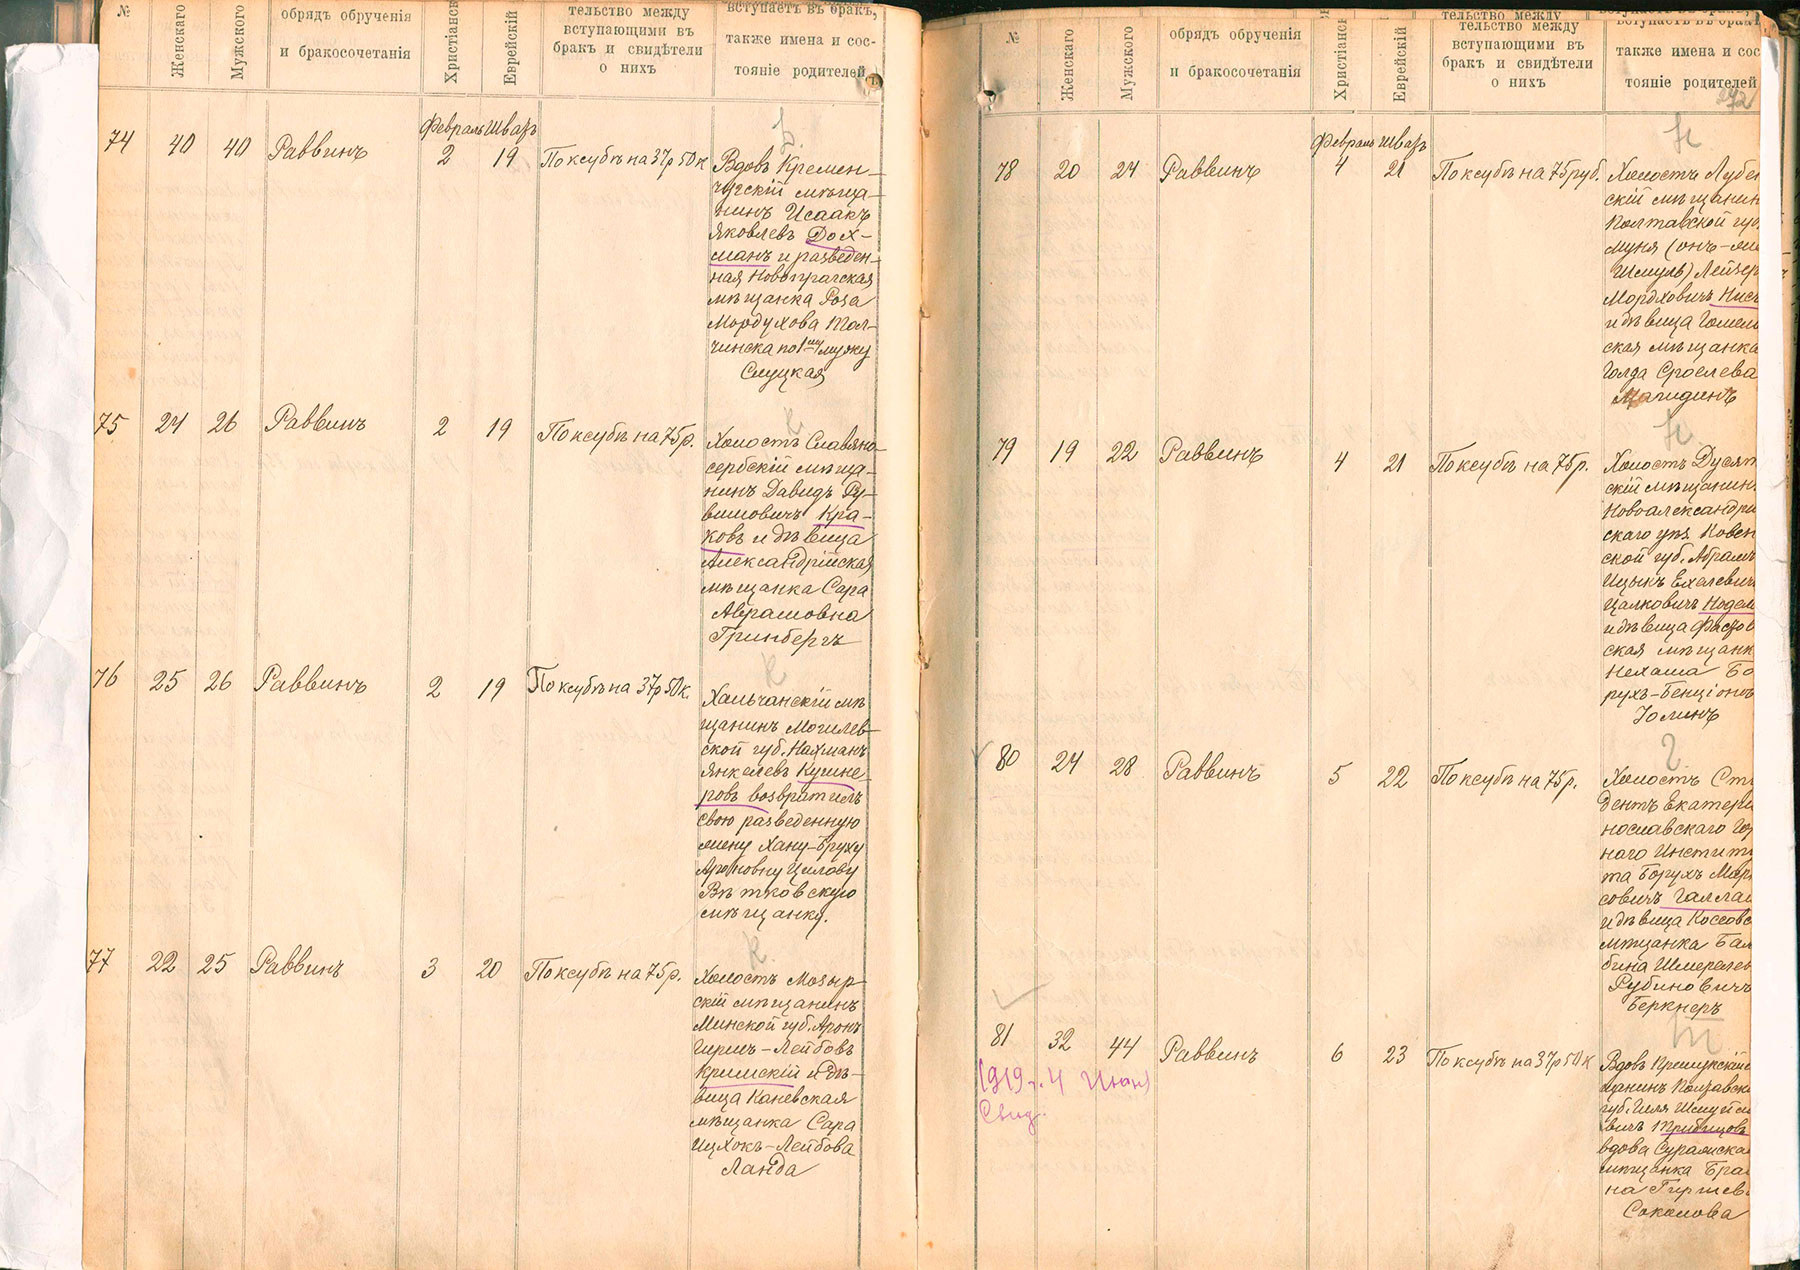 №
Женскаго
Мужского
обрядъ обрученія
и бракосочетанія
Христіанск
Еврейскій
тельство между
вступающими въ
бракъ и свидѣтели
о нихъ
вступаетъ въ бракъ,
также имена и сос-
тояніе родителей
Февраль Шватъ
74 40 40 Раввинъ 2 19 По ксубѣ на 37р 50к
Вдовъ Кремен-
чугскій мѣща-
нинъ Исаакъ
Яковлевъ Дох-
манъ и разведен-
ная Новопрагская
мѣщанка Роза
Мордухова Тол-
чинска по 1му мужу
Слуцкая
75 24 26 Раввинъ 2 19 По ксубѣ на 75р.
Холостъ Славяно-
сербскій мѣща-
нинъ Давидъ Ру-
вимовичъ Кра-
ковъ и дѣвица
Александрійская
мѣщанка Сара
Абрамовна
Гринбергъ
76 25 26 Раввинъ 2 19 По ксубѣ на 37р 50к.
Хальчанскій мѣ
щанинъ Могилев-
ской губ. Нахманъ
Янкелевъ Кушне-
ровъ возвратилъ
свою разведенную
жену Хану-Бруху
Ароновну Цилову
Вѣтковскую
мѣщанку.
77 22 25 Раввинъ 3 20 По ксубѣ на 75р.
Холостъ Мозыр
скій мѣщанинъ
Минской губ. Аронъ
Гиршъ-Лейбовъ
Кримскій и дѣ-
вица Каневская
мѣщанка Сара
Ицхокъ-Лейбова
Ланда
№
Женскаго
Мужского
обрядъ обрученія
и бракосочетанія
Христіанс
Еврейскій
тельство между
вступающими въ
бракъ и свидѣтели
о нихъ
вступаетъ въ брак
также имена и сос
тояніе родителей
272
Февраль Шватъ
78 20 24 Раввинъ 4 21 По ксубѣ на 75 руб.
Холостъ Лубен
скій мѣщанин
Полтавской губ
Муня (онъ-же
Шмуль) Лейзер
Мордховичъ Нис
и дѣвица Гомель
ская мѣщанка
Голда Сроелева
Магидинъ
79 19 22 Раввинъ 4 21 По ксубѣ на 75р.
Холостъ Дусят
скій мѣщанин
Новоалександри
скаго уѣз Ковен
ской губ. Абрамъ
Ицыкъ Ехелевич
Цалковичъ Нодел
и дѣвица Фастов
ская мѣщанк
Нехама Бо
рухъ-Бенціонов
Іоминъ
80 24 28 Раввинъ 5 22 По ксубѣ на 75р.
Холостъ Сту
дентъ Екатери
нославскаго Гор
наго Институ
та Борухъ Мар
совичъ Галлай
и дѣвица Коссовс
мѣщанка Бал
бина Шмерелев
Рубиновичъ
Беркнеръ
81 32 44 Раввинъ 6 23 По ксубѣ на 37р 50к
1919 г. 4 Июня
Свид.
губ. Гиля Шмуйл
вичъ Трибицовъ
вдова Суражска
мѣщанка Бра
на Гиршев
Соколова